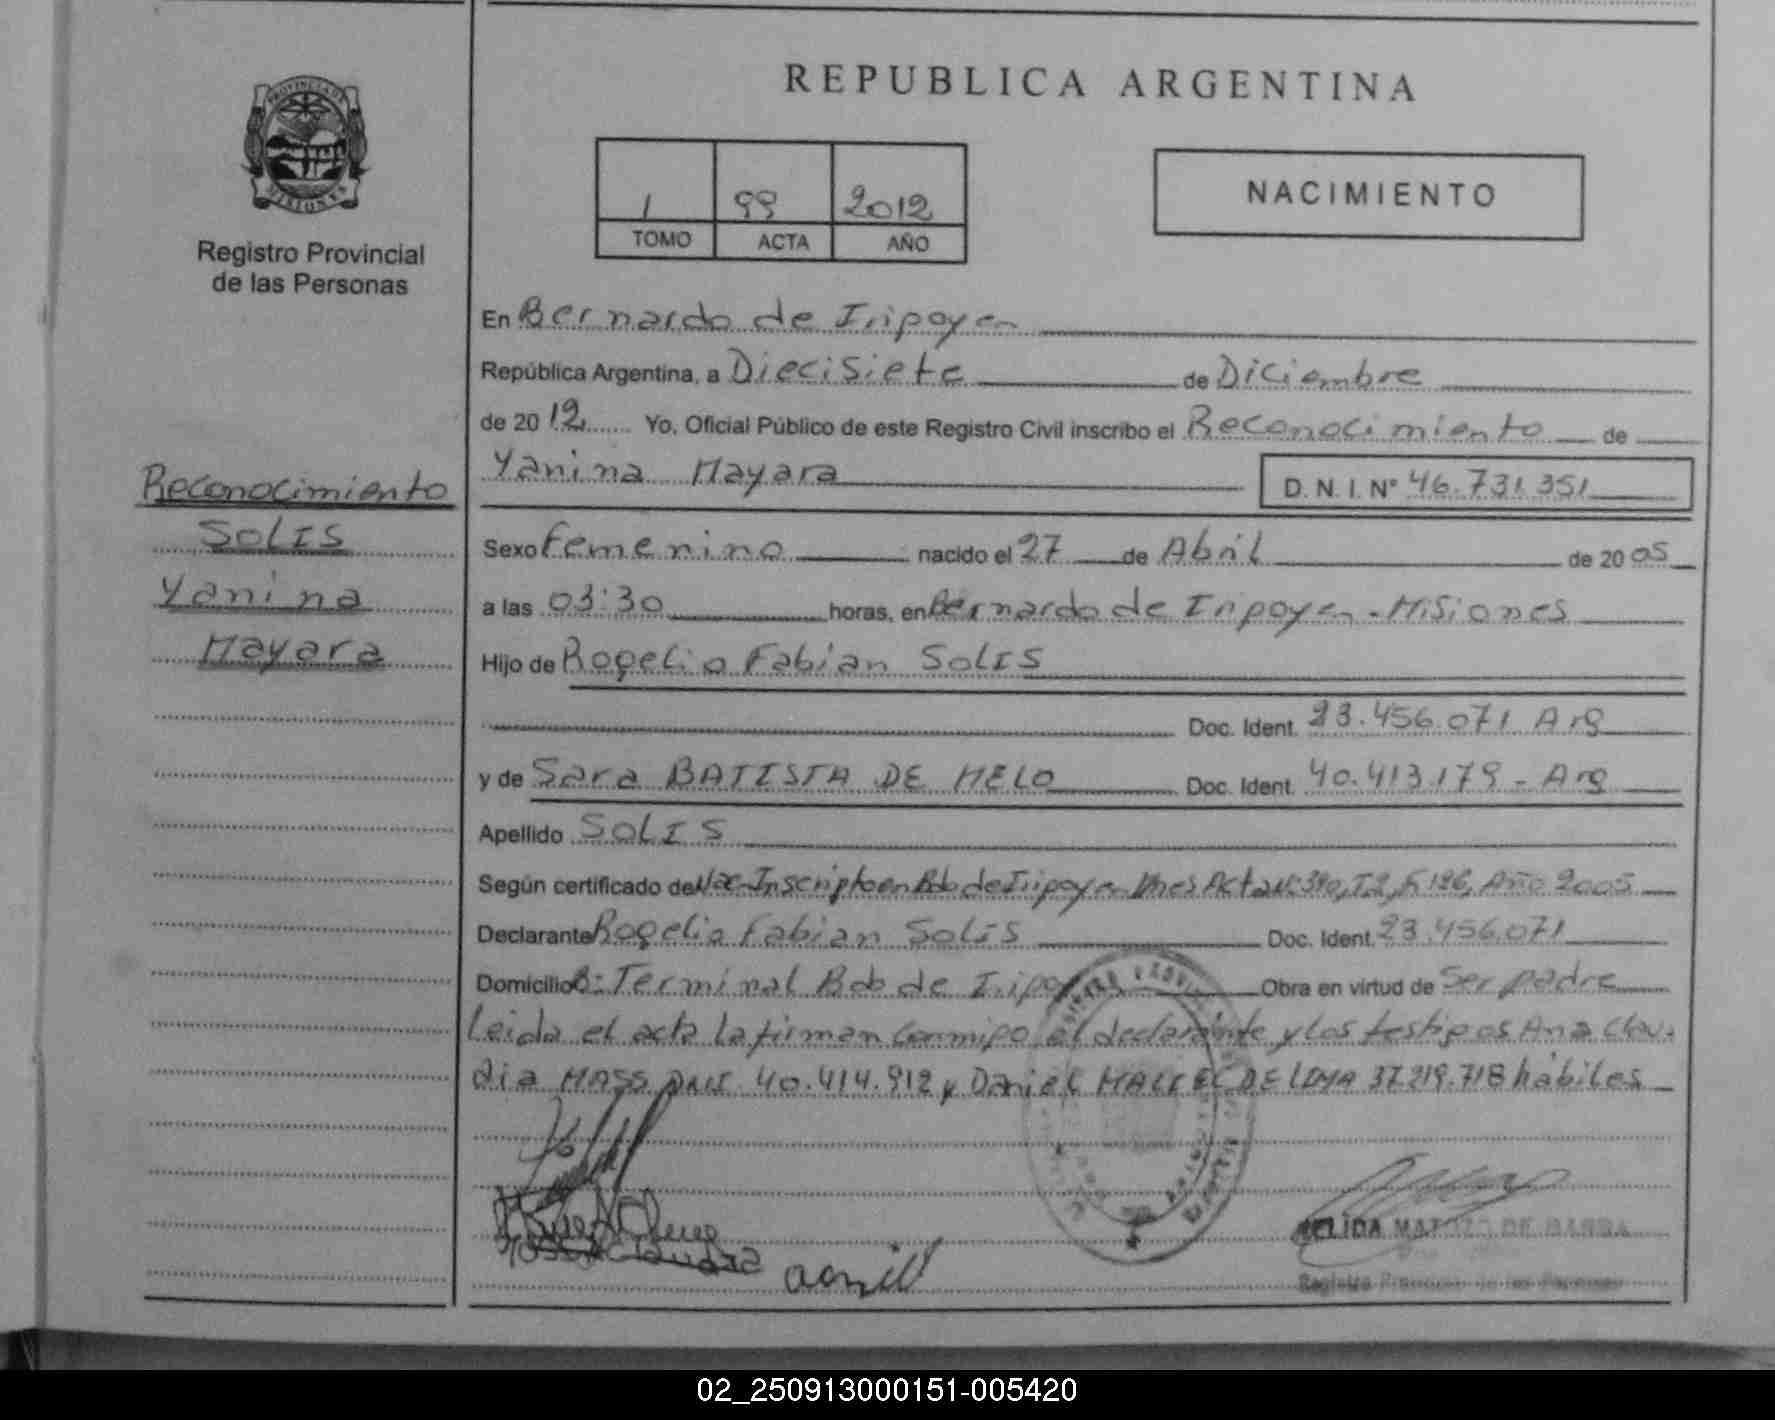 REPUBLICA ARGENTINA
PROVINCIA DE
MISIONES
Registro Provincial
de las Personas
1 99 2012
TOMO ACTA AÑO
NACIMIENTO
En Bernardo de Iripoyen
República Argentina, a Diecisiete de Diciembre
de 2012 Yo, Oficial Público de este Registro Civil inscribo el Reconocimiento de
Yanina Mayara D. N. I. Nº 46.731.351
Reconocimiento
SOLIS
Yanina
Mayara
Sexo Femenino nacido el 27 de Abril de 2005
a las 03:30 horas, en Bernardo de Iripoyen - Misiones
Hijo de Rogelio Fabian SOLIS
Doc. Ident. 23.456.071 Arg
y de Sara BATISTA DE MELO Doc. Ident. 40.413.179 - Arg
Apellido SOLIS
Según certificado de Nac. Inscripto en Bdo de Iripoyen Mnes Acta Nº 390, T2, F 196, Año 2005
Declarante Rogelio Fabian Solis Doc. Ident. 23.456.071
Domicilio B: Terminal Bdo de Iripo Obra en virtud de Ser padre
Leida el acta la firman conmigo el declarante y los testigos Ana Clau-
dia MASS DNI 40.414.912 y Daniel DE LIMA 37.219.718 hábiles
NELIDA MATOZO DE BARBA
Registro Provincial de las Personas
02_250913000151-005420